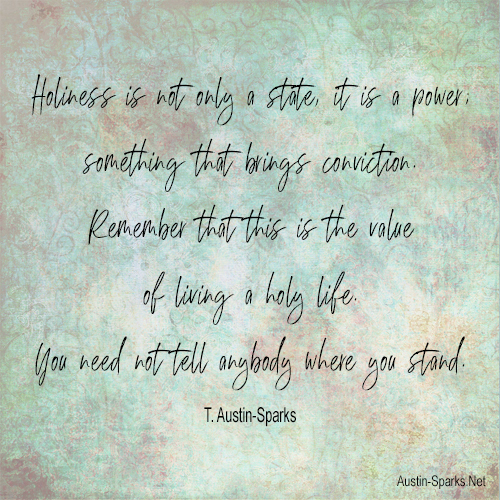 Holiness is not only a state, it is a power;
something that brings conviction.
Remember that this is the value
of living a holy life.
You need not tell anybody where you stand.
T. Austin-Sparks
Austin-Sparks.Net